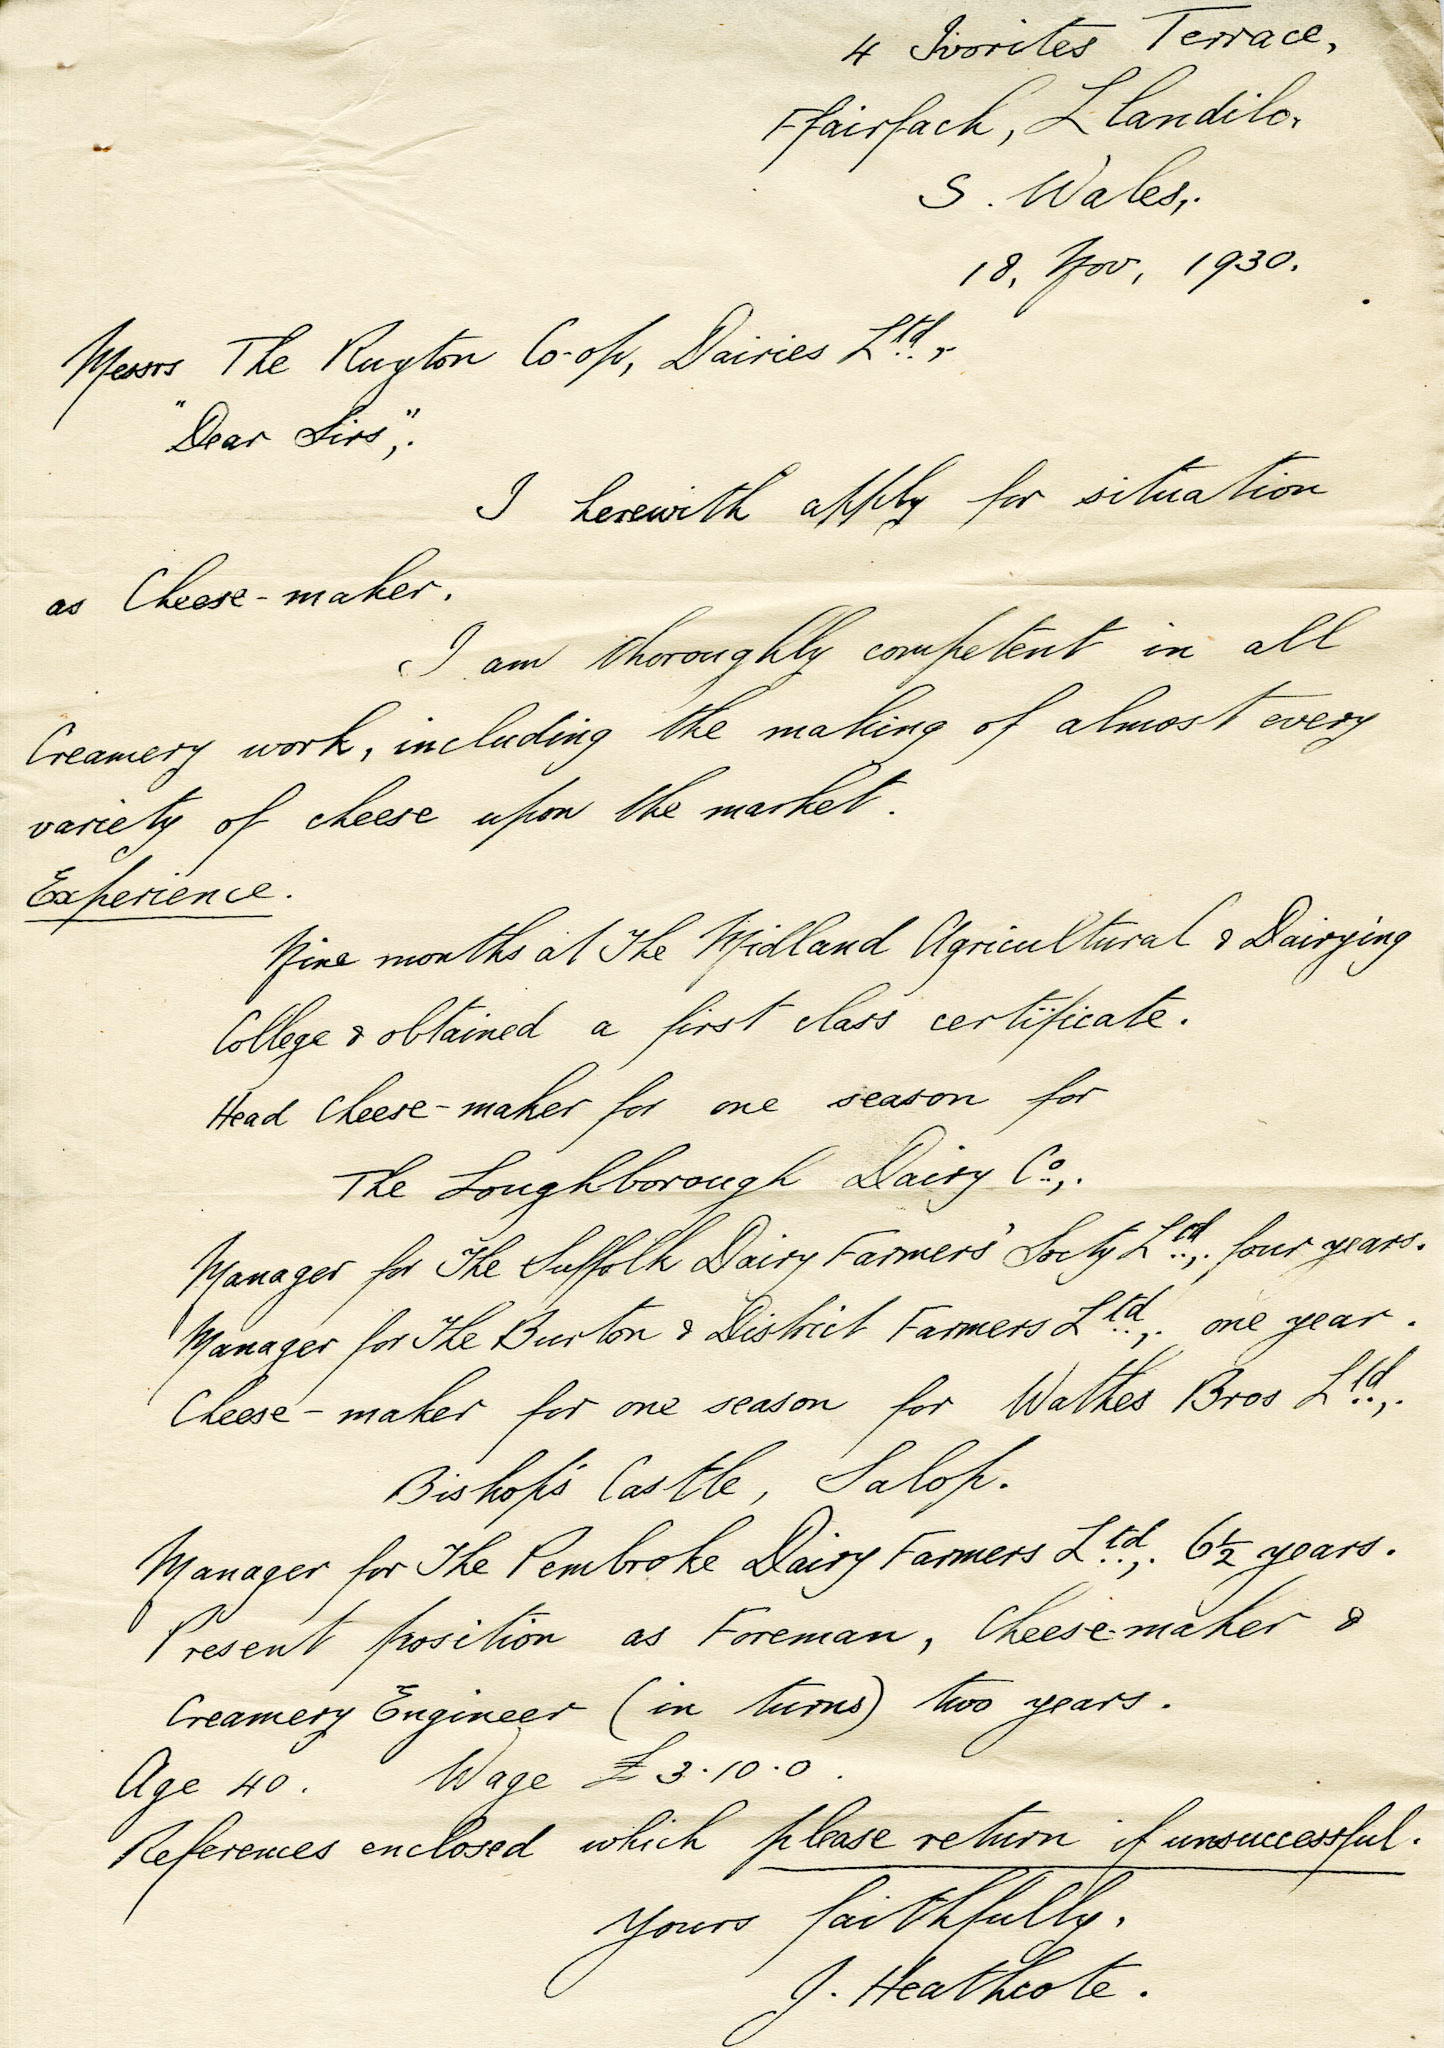 4 Ivorites Terrace,
Ffairfach, Llandilo.
S. Wales,.
18, Nov, 1930.
Messrs The Ruyton Co-op, Dairies Ltd.,
"Dear Sirs",.
I herewith apply for situation
as Cheese-maker.
I am thoroughly competent in all
Creamery work, including the making of almost every
variety of cheese upon the market.
Experience.
Nine months at The Midland Agricultural & Dairying
College & obtained a first class certificate.
Head Cheese-maker for one season for
The Loughborough Dairy Co.,.
Manager for The Suffolk Dairy Farmers' Socty Ltd.,. four years.
Manager for The Burton & District Farmers Ltd.,. one year.
Cheese-maker for one season for Wathes Bros Ltd.,.
Bishop's Castle, Salop.
Manager for The Pembroke Dairy Farmers Ltd.,. 6½ years.
Present position as Foreman, Cheese-maker &
Creamery Engineer (in turns) two years.
Age 40. Wage £3.10.0.
References enclosed which please return if unsuccessful.
Yours faithfully,
J. Heathcote.